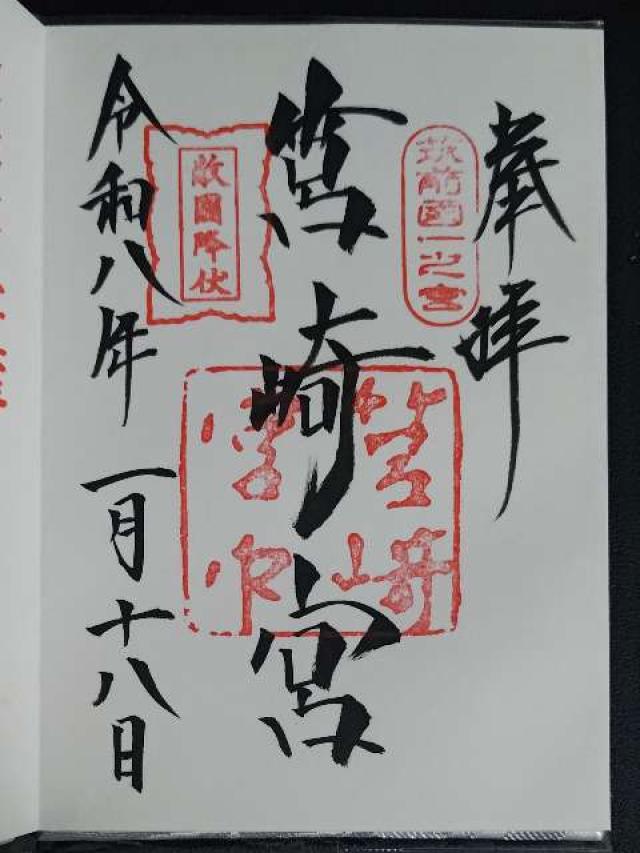 奉拝
筑前國一之宮
筥崎宮
敵國降伏
令和八年 一月十八日